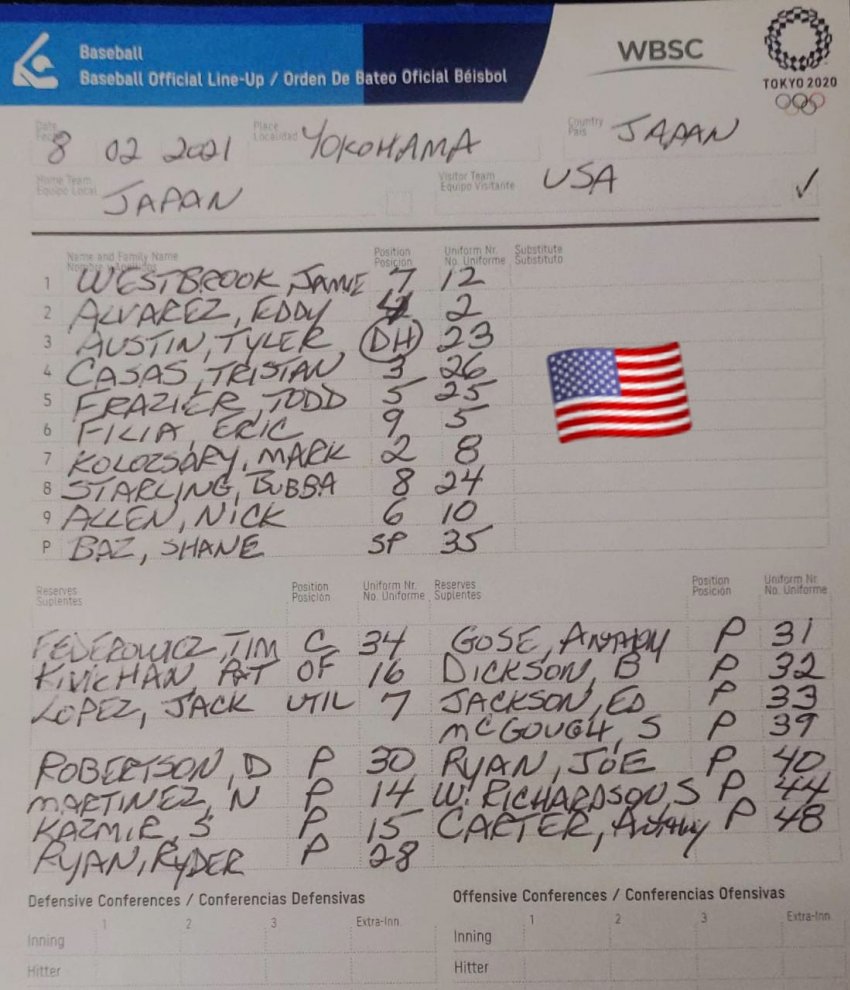 Baseball
Baseball Official Line-Up / Orden De Bateo Oficial Béisbol
WBSC
TOKYO 2020
Date 8 02 2021 Place Localidad YOKOHAMA Country País JAPAN
Home Team Equipo Local JAPAN Visitor Team Equipo Visitante USA ✓
Name and Family Name Position Posición Uniform Nr. No. Uniforme Substitute Substituto
1 WESTBROOK, JAMIE 7 12
2 ALVAREZ, EDDY 4 2
3 AUSTIN, TYLER DH 23
4 CASAS, TRISTAN 3 26
5 FRAZIER, TODD 5 25
6 FILIA, ERIC 9 5
7 KOLOZSARY, MARK 2 8
8 STARLING, BUBBA 8 24
9 ALLEN, NICK 6 10
P BAZ, SHANE SP 35
Reserves Suplentes Position Posición Uniform Nr. No. Uniforme Reserves Suplentes Position Posición Uniform Nr. No. Uniforme
FEDEROWICZ, TIM C 34 GOSE, ANTHONY P 31
KIVICHAN, PAT OF 16 DICKSON, B P 32
LOPEZ, JACK UTIL 7 JACKSON, ED P 33
McGOUGH, S P 39
ROBERTSON, D P 30 RYAN, JOE P 40
MARTINEZ, N P 14 W. RICHARDSON, S P 44
KAZMIR, S P 15 CARTER, Anthony P 48
RYAN, RYDER P 28
Defensive Conferences / Conferencias Defensivas Offensive Conferences / Conferencias Ofensivas
1 2 3 Extra-Inn. 1 2 3 Extra-Inn.
Inning Inning
Hitter Hitter